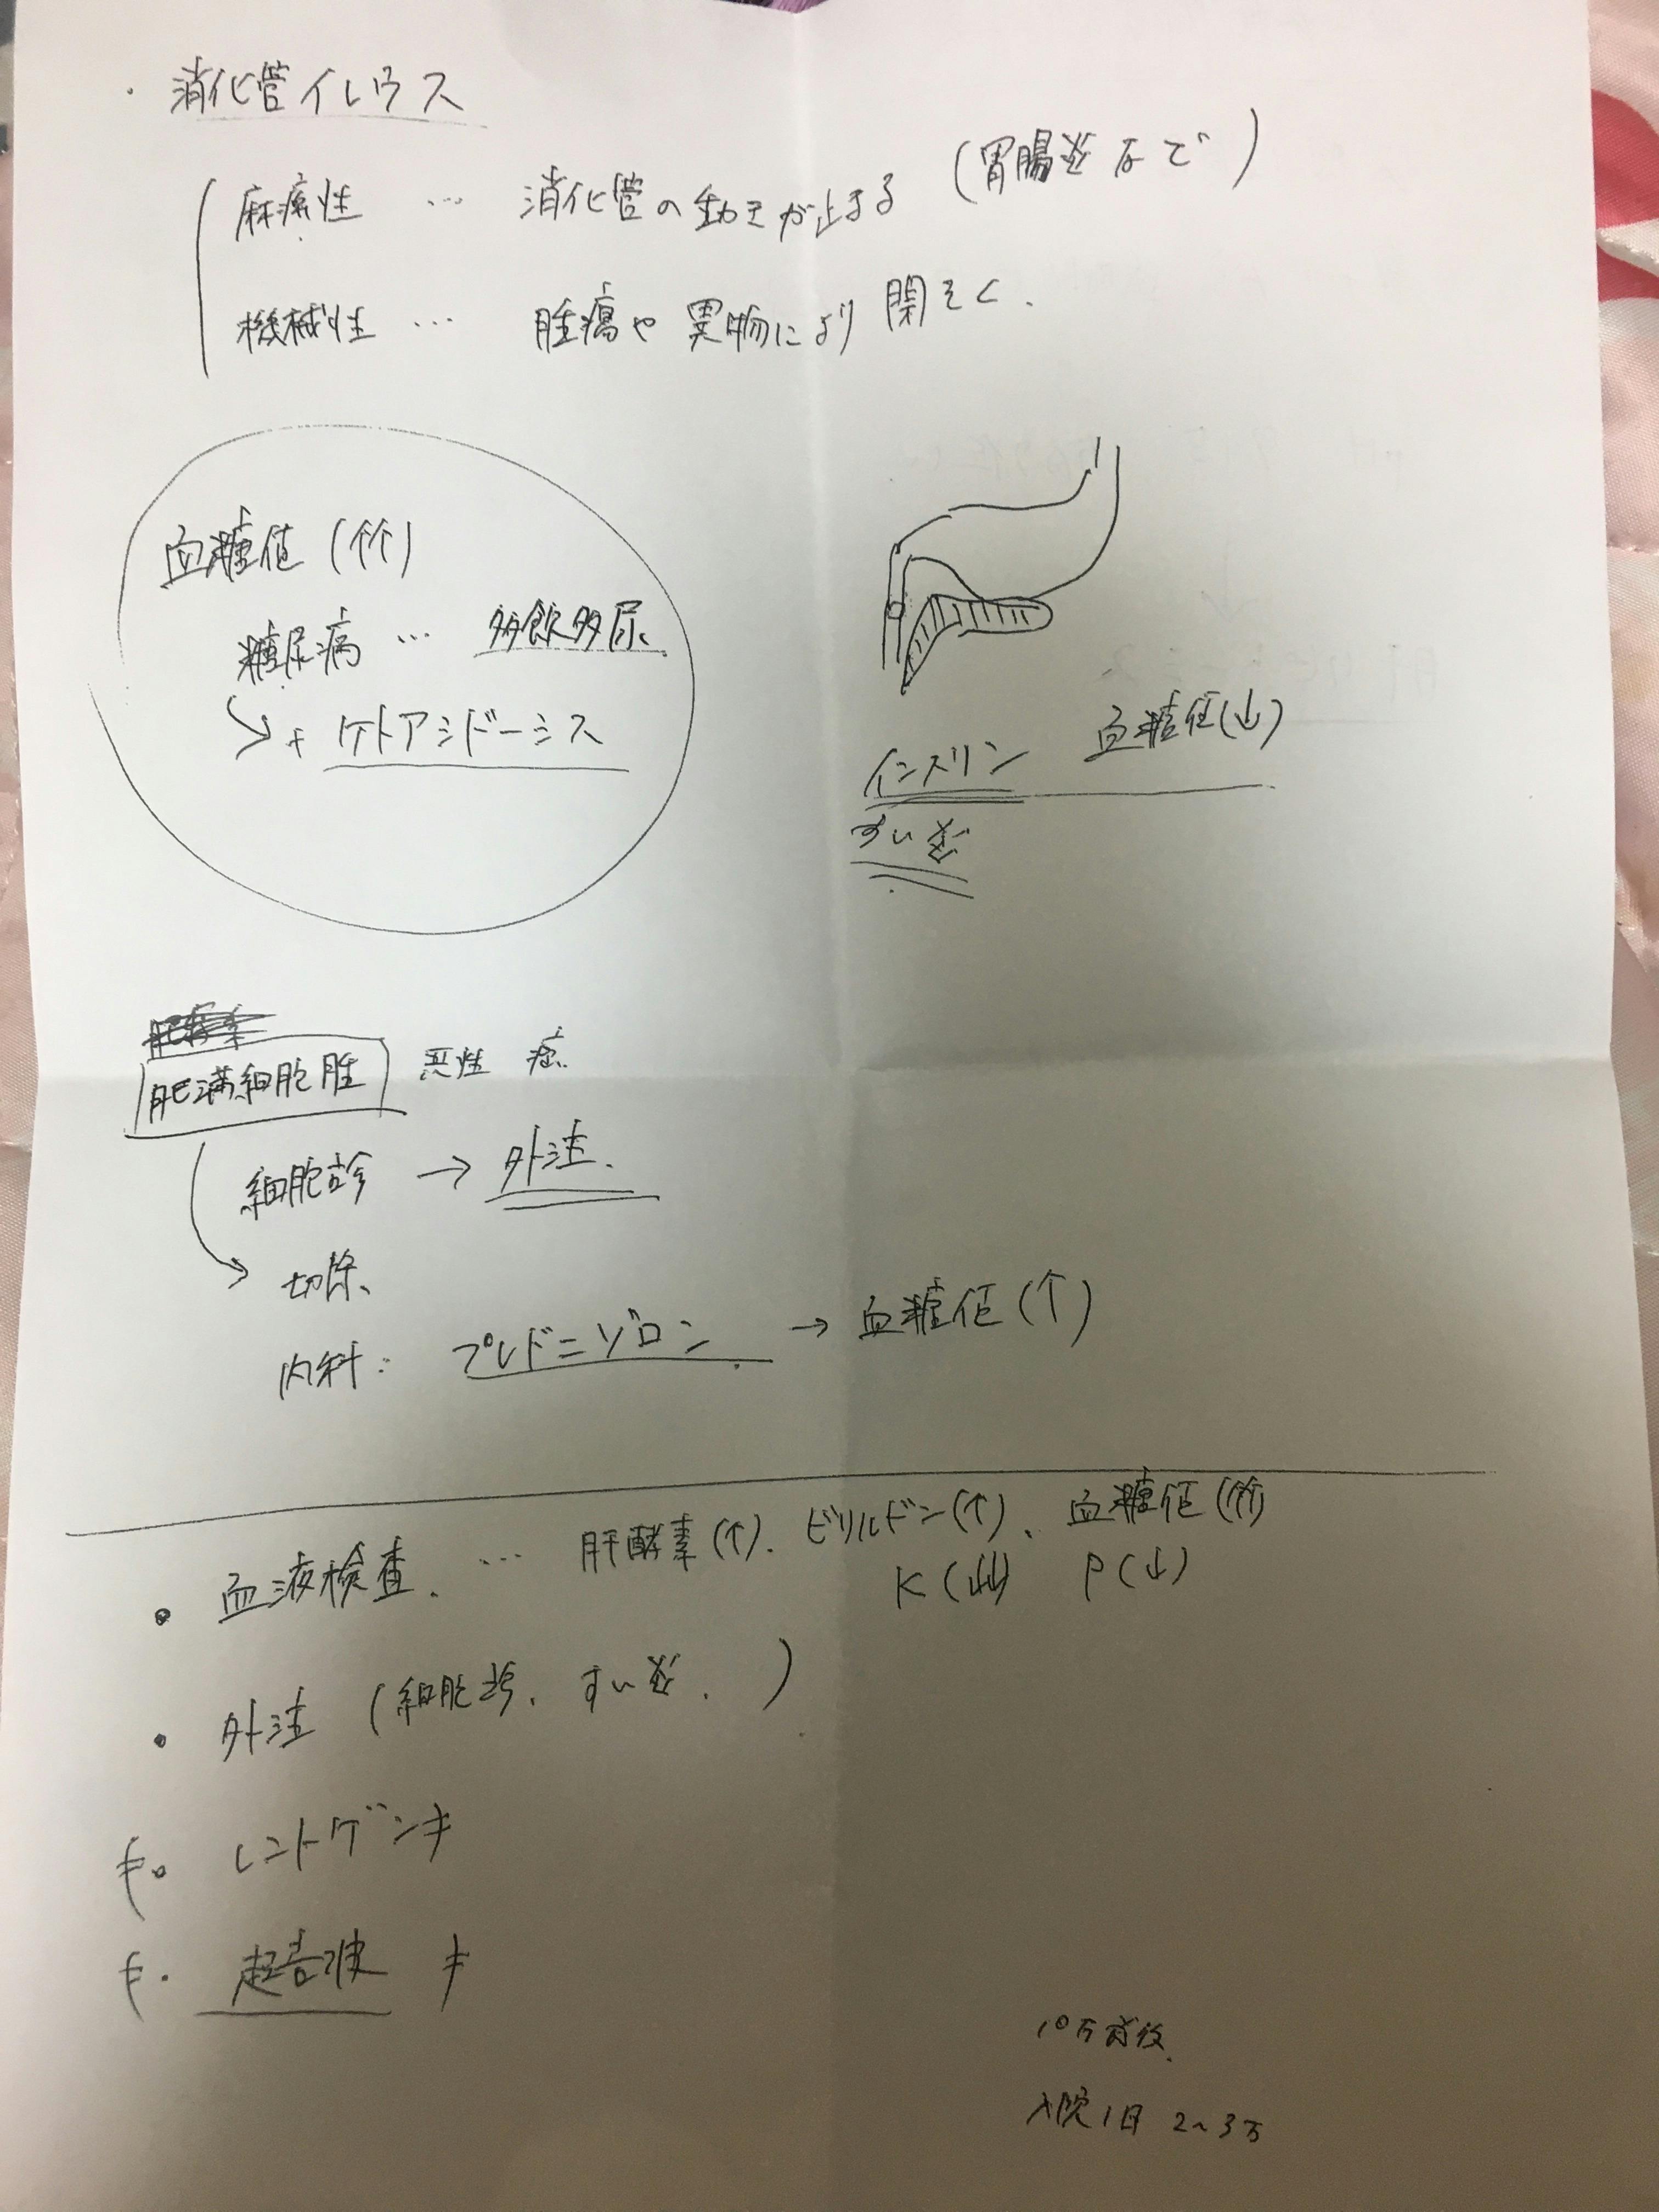 ・消化管イレウス
麻痺性 … 消化管の動きが止まる (胃腸炎など)
機械性 … 腫瘍や異物により閉そく.
血糖値 (↑↑)
糖尿病 … 多飲多尿、
+ ケトアシドーシス
血糖値(↓)
インスリン
すい炎
肥満細胞腫 悪性 癌.
細胞診 → 外注、
切除、
内科: プレドニゾロン → 血糖値 (↑)
・血液検査. … 肝酵素 (↑). ビリルビン(↑)、血糖値 (↑↑)
K (↓↓↓) P (↓)
・外注 (細胞診、すい炎、 )
・レントゲン
・超音波
10万前後.
入院1日 2~3万